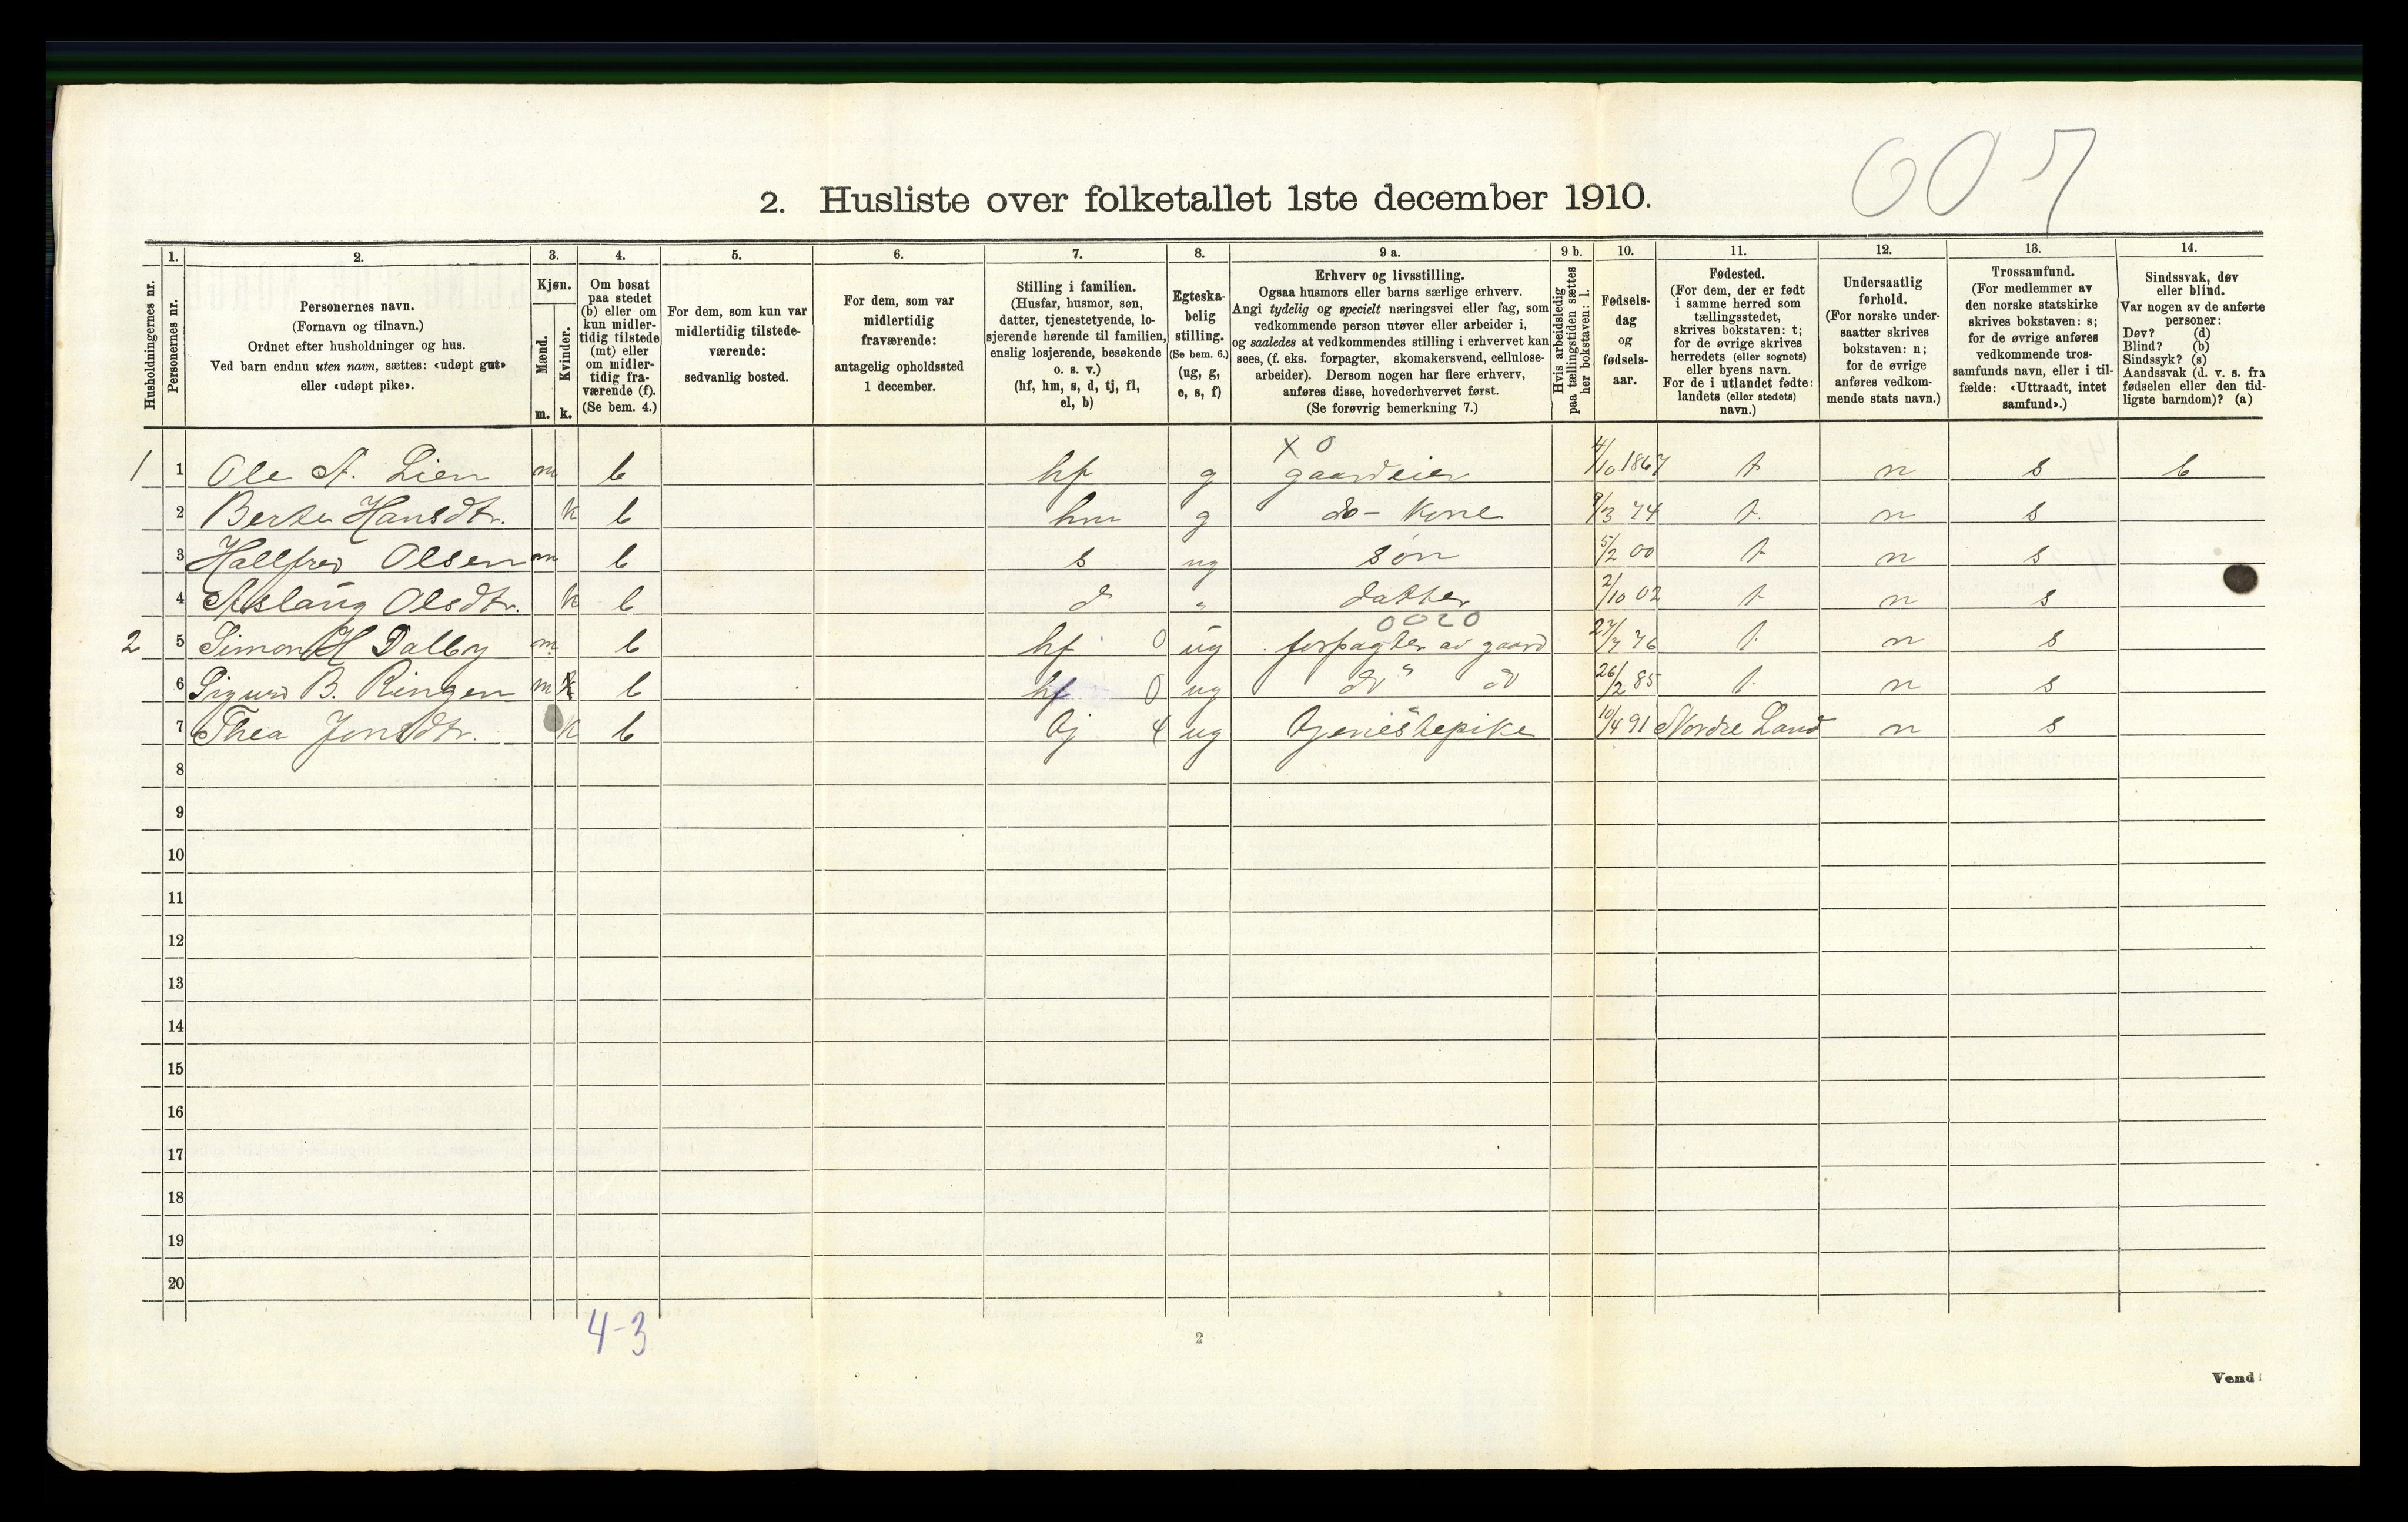 607
2. Husliste over folketallet 1ste december 1910.
Husholdningernes nr.
1.
Personernes nr.
2.
Personernes navn.
(Fornavn og tilnavn.)
Ordnet efter husholdninger og hus.
Ved barn endnu uten navn, sættes: «udøpt gut»
eller «udøpt pike».
3.
Kjøn.
Mænd.
Kvinder.
m. k.
4.
Om bosat
paa stedet
(b) eller om
kun midler-
tidig tilstede
(mt) eller
om midler-
tidig fra-
værende (f).
(Se bem. 4.)
5.
For dem, som kun var
midlertidig tilstede-
værende:
sedvanlig bosted.
6.
For dem, som var
midlertidig
fraværende:
antagelig opholdssted
1 december.
7.
Stilling i familien.
(Husfar, husmor, søn,
datter, tjenestetyende, lo-
sjerende hørende til familien,
enslig losjerende, besøkende
o. s. v.)
(hf, hm, s, d, tj, fl,
el, b)
8.
Egteska-
belig
stilling.
(Se bem. 6.)
(ug, g,
e, s, f)
9 a.
Erhverv og livsstilling.
Ogsaa husmors eller barns særlige erhverv.
Angi tydelig og specielt næringsvei eller fag, som
vedkommende person utøver eller arbeider i,
og saaledes at vedkommendes stilling i erhvervet kan
sees, (f. eks. forpagter, skomakersvend, cellulose-
arbeider). Dersom nogen har flere erhverv,
anføres disse, hovederhvervet først.
(Se forøvrig bemerkning 7.)
9 b.
Hvis arbeidsledig
paa tællingstiden sættes
her bokstaven: l.
10.
Fødsels-
dag
og
fødsels-
aar.
11.
Fødested.
(For dem, der er født
i samme herred som
tællingsstedet,
skrives bokstaven: t;
for de øvrige skrives
herredets (eller sognets)
eller byens navn.
For de i utlandet fødte:
landets (eller stedets)
navn.)
12.
Undersaatlig
forhold.
(For norske under-
saatter skrives
bokstaven: n;
for de øvrige
anføres vedkom-
mende stats navn.)
13.
Trossamfund.
(For medlemmer av
den norske statskirke
skrives bokstaven: s;
for de øvrige anføres
vedkommende tros-
samfunds navn, eller i til-
fælde: «Uttraadt, intet
samfund».)
14.
Sindssvak, døv
eller blind.
Var nogen av de anførte
personer:
Døv? (d)
Blind? (b)
Sindssyk? (s)
Aandssvak (d. v. s. fra
fødselen eller den tid-
ligste barndom)? (a)
x 0
1 1 Ole A. Lien m b hf g gaardeier 4/10 1867 t n s b
2 Berte Hansdtr. k b hm g do- kone 9/3 74 t. n s
3 Hallfred Olsen m b s ug søn 5/2 00 t n s
4 Aslaug Olsdtr. k b d " datter 2/10 02 t n s
0020
2 5 Simon H Dalby m. b hf 0 ug forpagter av gaard 27/7 76 t. n. s
6 Sigurd B. Ringen m k b hf 0 ug do " do 26/2 85 t. n s
7 Thea Jonsdtr. k b tj 4 ug tjenestepike 10/4 91 Nordre Land n s
8
9
10
11
12
13
14
15
16
17
18
19
20
4-3
2
Vend!